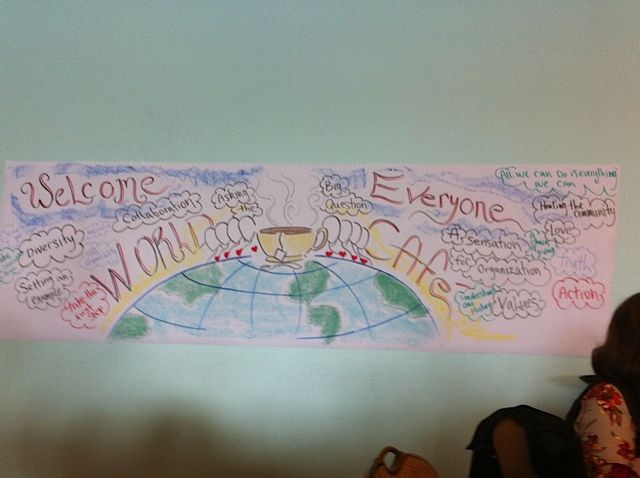 Welcome
Everyone
WORLD
CAFE
Collaboration
Asking
the
Big
Question
Diversity
Setting an
example
first
step
All we can Do is everything
we can
Healing the
community
Love
A sensation
for organization
Truth
Understand
our history
Values
Action